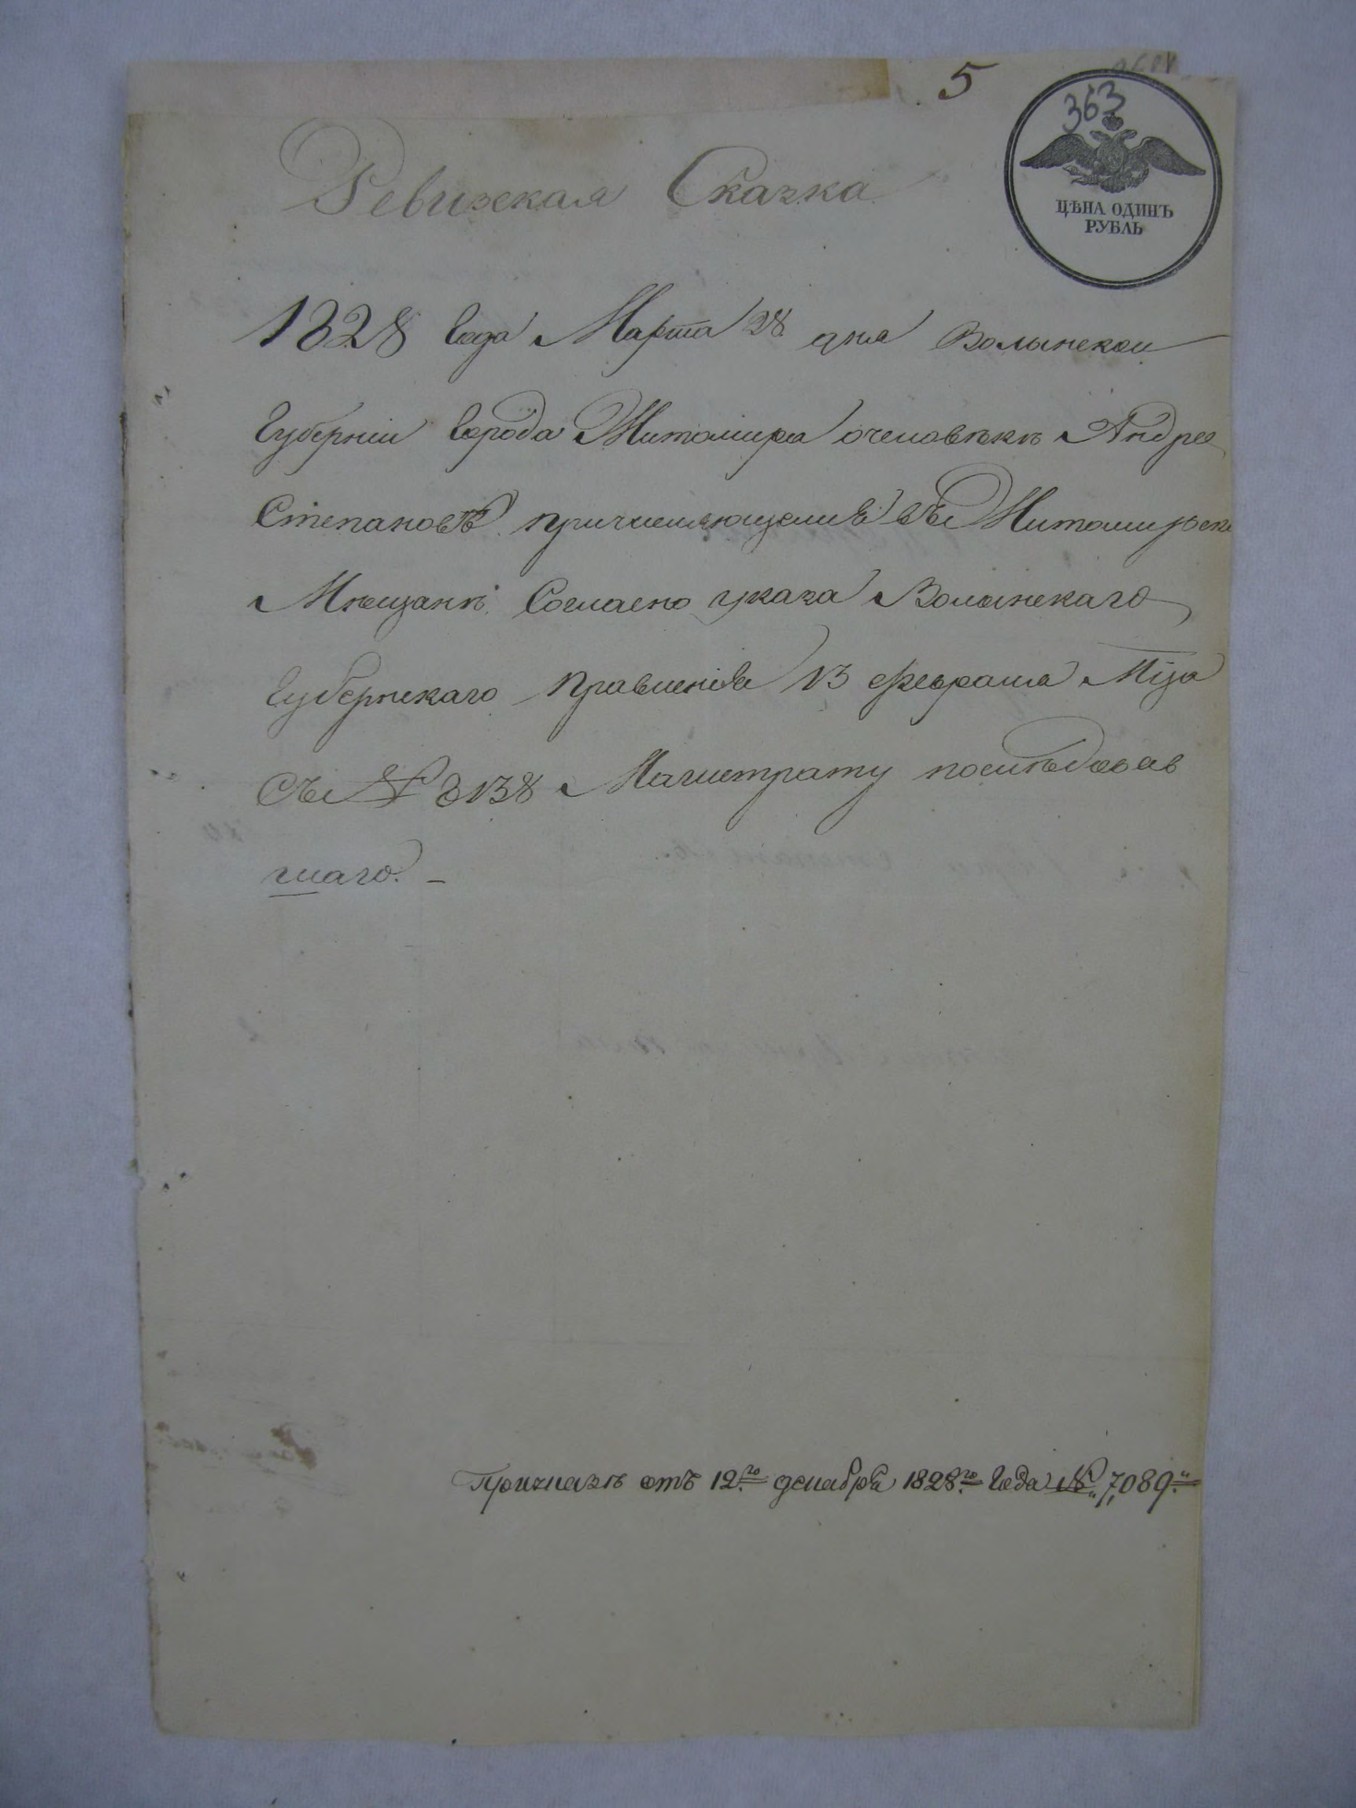 5
363
ЦѢНА ОДИНЪ
РУБЛЬ
Ревижская Сказка
1828 Года Марта 28 дня Волынской
Губерніи города Житомира очеловѣкѣ Андрее
Степановѣ причисляющемся въ Житомирские
Мѣщанѣ. Согласно указа Волынскаго
Губернскаго Правленія 13 февраля Мца
Съ № 3138 Магистрату последовав
шаго. –
Признанъ отъ 12го декабря 1828го Года № 7,089